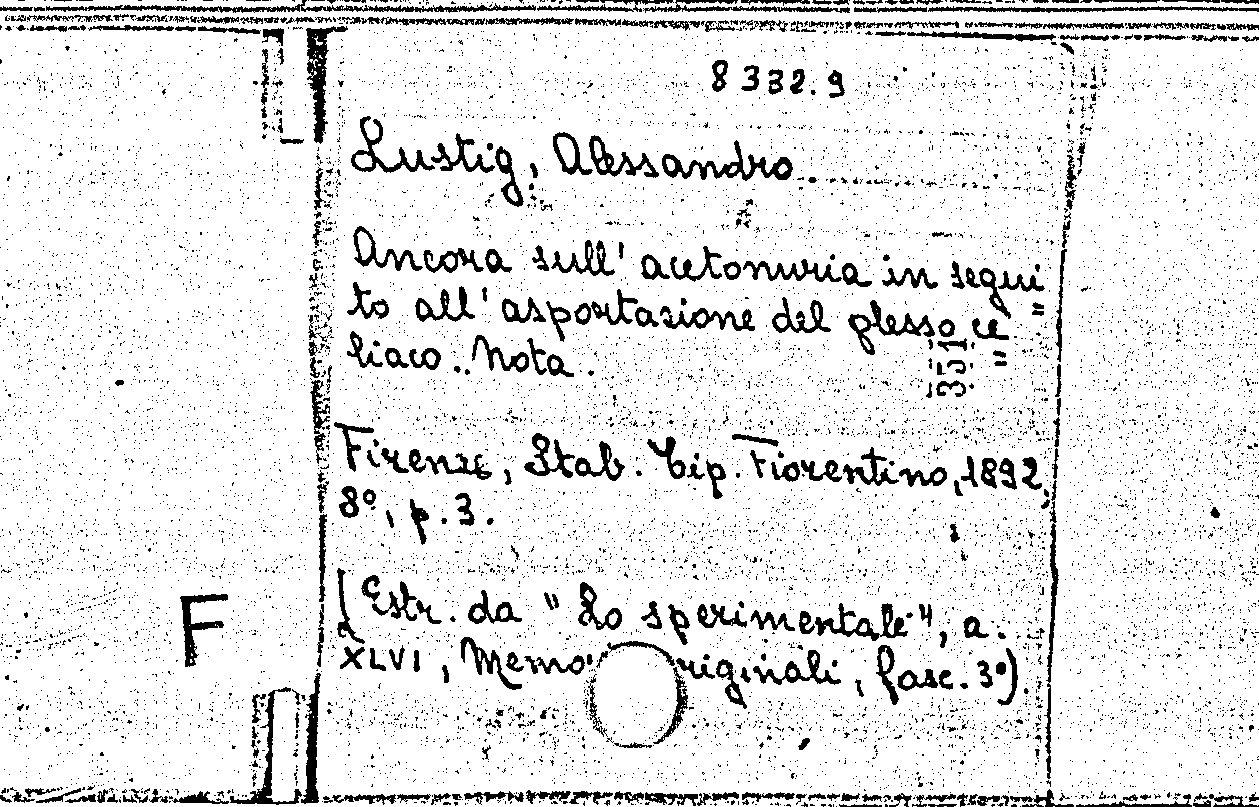 8332.9
Lustig, Alessandro
Ancora sull'acetonuria in segui=
to all'asportazione del plesso ce=
liaco. Nota.
351
Firenze, Stab. Tip. Fiorentino, 1892,
8°, p. 3.
(Estr. da "Lo sperimentale", a.
XLVI, fasc. 3°)
F